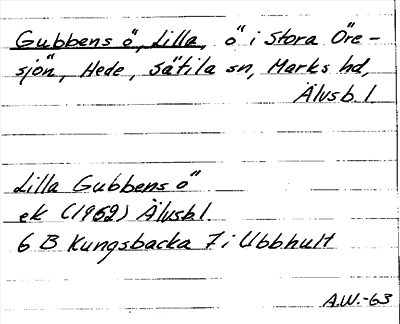 Gubbens ö, Lilla, ö i Stora Öre-
sjön, Hede, Sätila sn, Marks hd,
Älvsb. l.
Lilla Gubbens ö
ek (1962) Älvsb l.
6 B Kungsbacka 7 i Ubbhult
A.W.-63